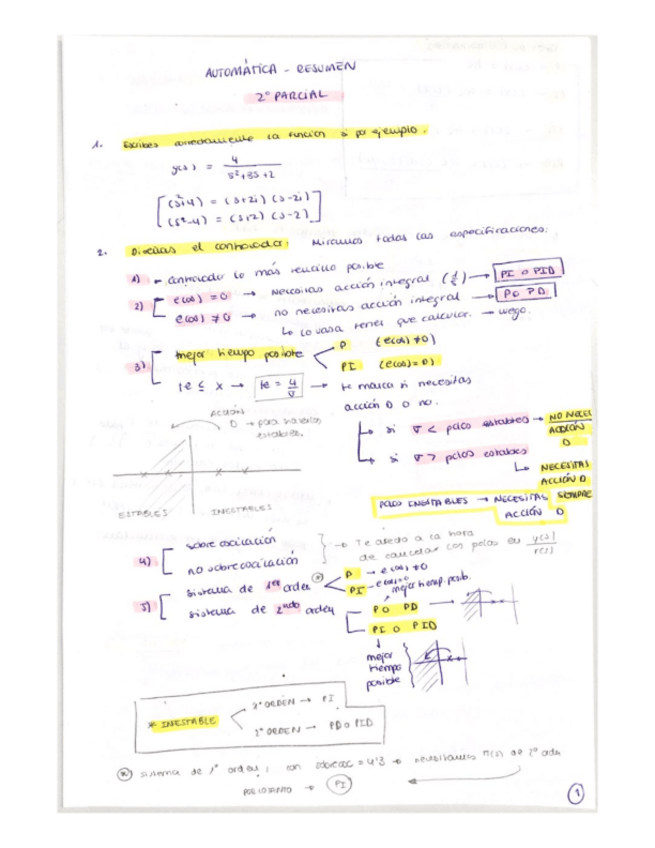 AUTOMÁTICA - RESUMEN
2º PARCIAL
1. Escribes correctamente la función por ejemplo.
y(s) = 4 / s²+3s+2
(s²+4) = (s+2i) (s-2i)
(s²-4) = (s+2) (s-2)
2. Diseñas el controlador. Miramos todas las especificaciones:
1) controlador lo más sencillo posible
2) e(∞) = 0 → Necesitas acción integral (1/s) → PI O PID
e(∞) ≠ 0 → no necesitas acción integral → P O PD
↳ lo vas a tener que calcular. → luego.
3) mejor tiempo posible
P (e(∞) ≠ 0)
PI (e(∞) = 0)
te ≤ x → te = 4/σ → te marca si necesitas
acción D o no.
ACCIÓN
D → para hacerlos
estables.
ESTABLES INESTABLES
↳ si σ < polos estables → NO NECES
ACCIÓN
D
↳ si σ > polos estables
↳ NECESITAS
ACCIÓN D
POLOS INESTABLES → NECESITAS SIEMPRE
ACCIÓN D
4) sobreoscilación
no sobreoscilación
→ Te afecta a la hora
de cancelar los polos en y(s)/r(s)
5) sistema de 1er orden
P → e(∞) ≠ 0
PI - e(∞)=0
mejor tiemp. posib.
sistema de 2ndo orden
P O PD
PI O PID
mejor
tiempo
posible
* INESTABLE
1º ORDEN → PI
2º ORDEN → PD O PID
sistema de 1º orden, con sobreosc = 4'3 → necesitamos M(s) de 2º orden
POR LO TANTO → PI
1